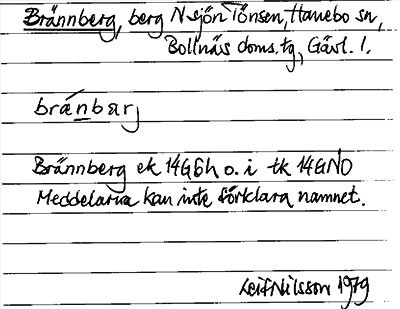 Brännberg, berg N sjön Tönsen, Hanebo sn,
Bollnäs doms.tg, Gävl. l.
brǽnbarj
Brännberg ek 14G6h o. i tk 14GNO
Meddelarna kan inte förklara namnet.
Leif Nilsson 1979